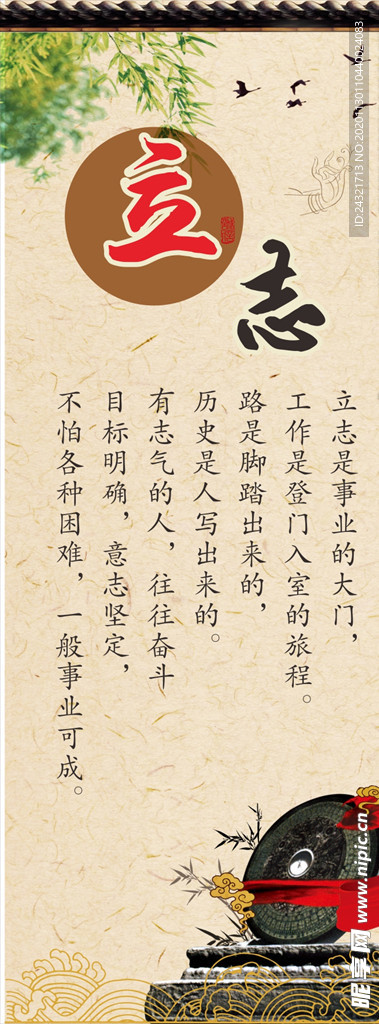 立
志
立志是事业的大门，
工作是登门入室的旅程。
路是脚踏出来的，
历史是人写出来的。
有志气的人，往往奋斗
目标明确，意志坚定，
不怕各种困难，一般事业可成。
ID:24321713 NO:20201130110440024083
昵享网 www.nipic.cn